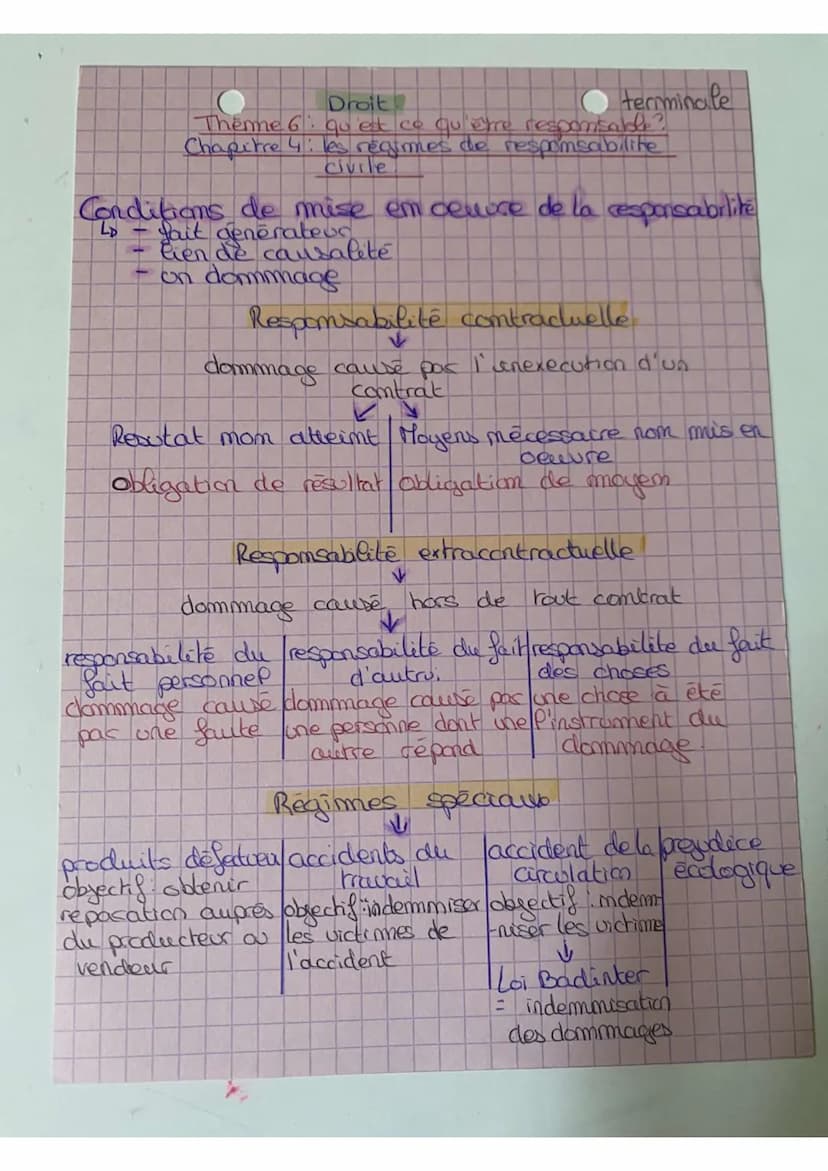 Droit
terminale
Thème 6 : qu'est ce qu'être responsable ?
Chapitre 4 : les régimes de responsabilité
civile
Conditions de mise en oeuvre de la responsabilité
↳ - fait générateur
- lien de causalité
- un dommage
Responsabilité contractuelle
↓
dommage causé par l'inexecution d'un
contrat
↙ ↘
Resultat non atteint
obligation de résultat
Moyens nécessaire non mis en
oeuvre
obligation de moyen
Responsabilité extracontractuelle
↓
dommage causé hors de tout contrat
↓
responsabilité du
fait personnel
dommage causé
par une faute
responsabilité du fait
d'autrui
dommage causé par
une personne dont une
autre répond
responsabilite du fait
des choses
une chose à été
l'instrument du
dommage.
Régimes spéciaux
↓
produits défectueu
objectif : obtenir
reparation auprès
du producteur ou
vendeur
accidents du
travail
objectif : indemniser
les victimes de
l'accident
accident de la
circulation
objectif : indem
-niser les victime
↓
Loi Badinter
= indemnisation
des dommages
prejudice
écologique